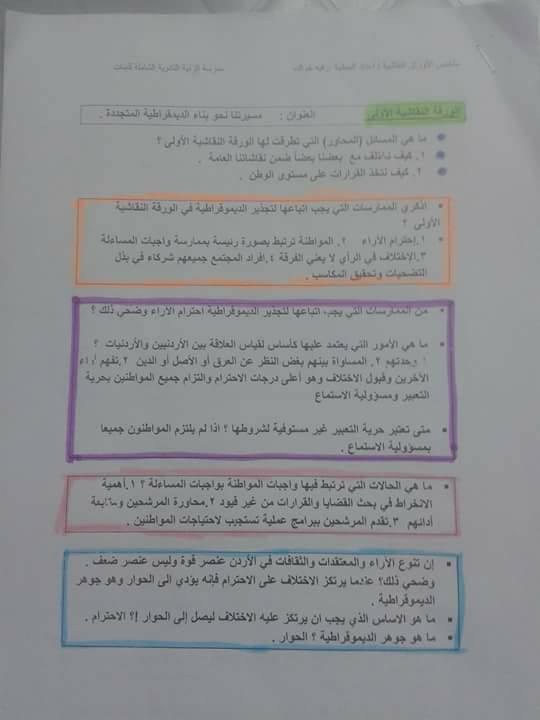 ملخص الأوراق النقاشية إعداد المعلمة رقية
مدرسة الثانوية الشاملة للبنات
الورقة النقاشية الأولى
العنوان : مسيرتنا نحو بناء الديمقراطية المتجددة .
ما هي المسائل (المحاور) التي تطرقت لها الورقة النقاشية الأولى ؟
١. كيف نختلف مع بعضنا بعضاً ضمن نقاشاتنا العامة .
٢. كيف نتخذ القرارات على مستوى الوطن .
اذكري الممارسات التي يجب اتباعها لتجذير الديموقراطية في الورقة النقاشية
الأولى ؟
١.إحترام الآراء ٢. المواطنة ترتبط بصورة رئيسة بممارسة واجبات المساءلة
٣.الاختلاف في الرأي لا يعني الفرقة ٤.افراد المجتمع جميعهم شركاء في بذل
التضحيات وتحقيق المكاسب .
من الممارسات التي يجب اتباعها لتجذير الديموقراطية احترام الآراء وضحي ذلك ؟
ما هي الأمور التي يعتمد عليها كأساس لقياس العلاقة بين الأردنيين والأردنيات ؟
وحدتهم ٢. المساواة بينهم بغض النظر عن العرق أو الأصل أو الدين ٣.تفهم آراء
الآخرين وقبول الاختلاف وهو أعلى درجات الاحترام والتزام جميع المواطنين بحرية
التعبير ومسؤولية الاستماع
متى تعتبر حرية التعبير غير مستوفية لشروطها ؟ اذا لم يلتزم المواطنون جميعا
بمسؤولية الاستماع .
ما هي الحالات التي ترتبط فيها واجبات المواطنة بواجبات المساءلة ؟ ١.أهمية
الانخراط في بحث القضايا والقرارات من غير قيود ٢.محاورة المرشحين ومتابعة
أدائهم ٣.تقدم المرشحين ببرامج عملية تستجيب لاحتياجات المواطنين .
إن تنوع الآراء والمعتقدات والثقافات في الأردن عنصر قوة وليس عنصر ضعف .
وضحي ذلك؟ عندما يرتكز الاختلاف على الاحترام فإنه يؤدي الى الحوار وهو جوهر
الديموقراطية .
ما هو الاساس الذي يجب ان يرتكز عليه الاختلاف ليصل إلى الحوار !؟ الاحترام .
ما هو جوهر الديموقراطية ؟ الحوار .